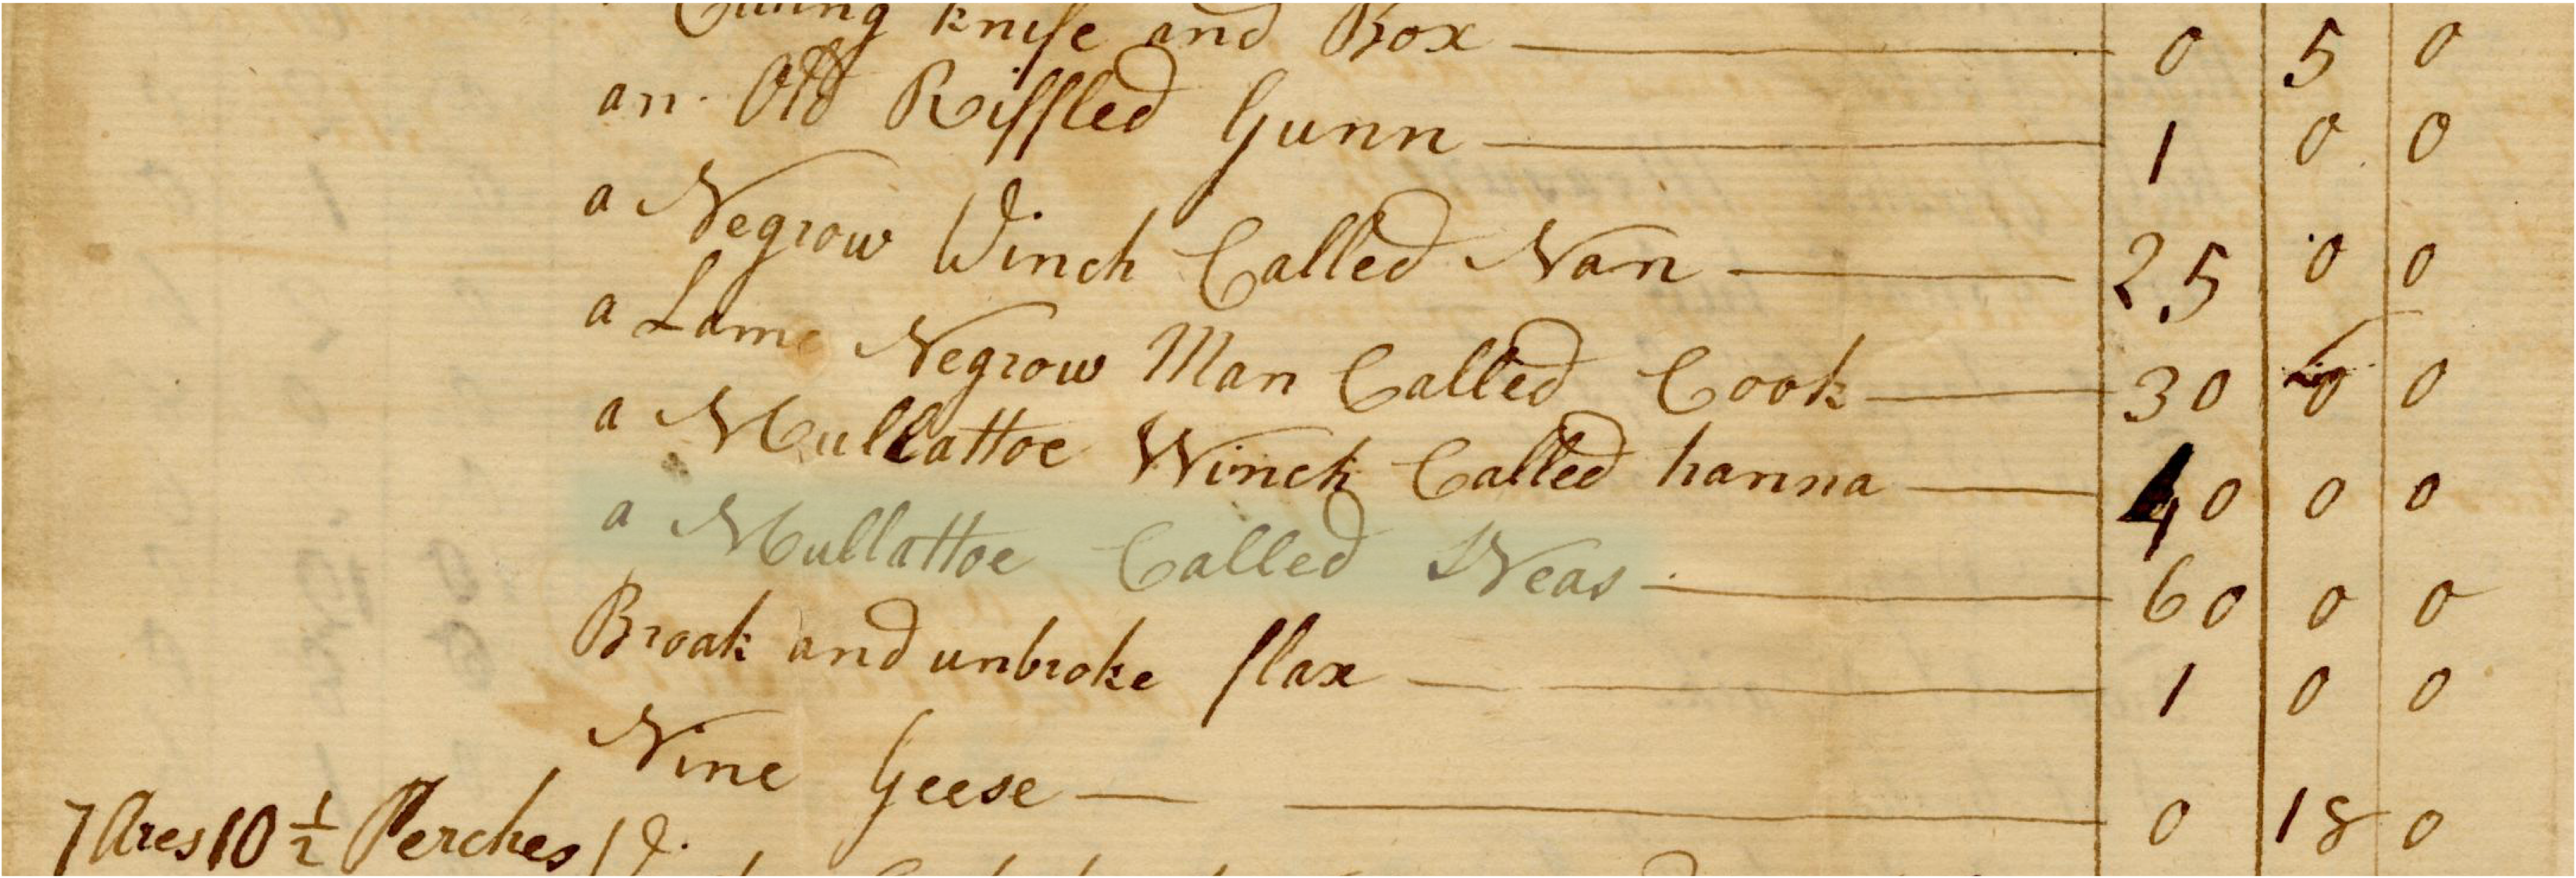 Cutting knife and Box 0 5 0
an Old Riffled Gunn 1 0 0
a Negrow Winch Called Nan 25 0 0
a Lame Negrow Man Called Cook 30 0 0
a Mullattoe Winch Called hanna 40 0 0
a Mullattoe Called Neas 60 0 0
Broak and unbroke flax 1 0 0
Nine Geese 0 18 0
7 Acres 10 1/2 Perches